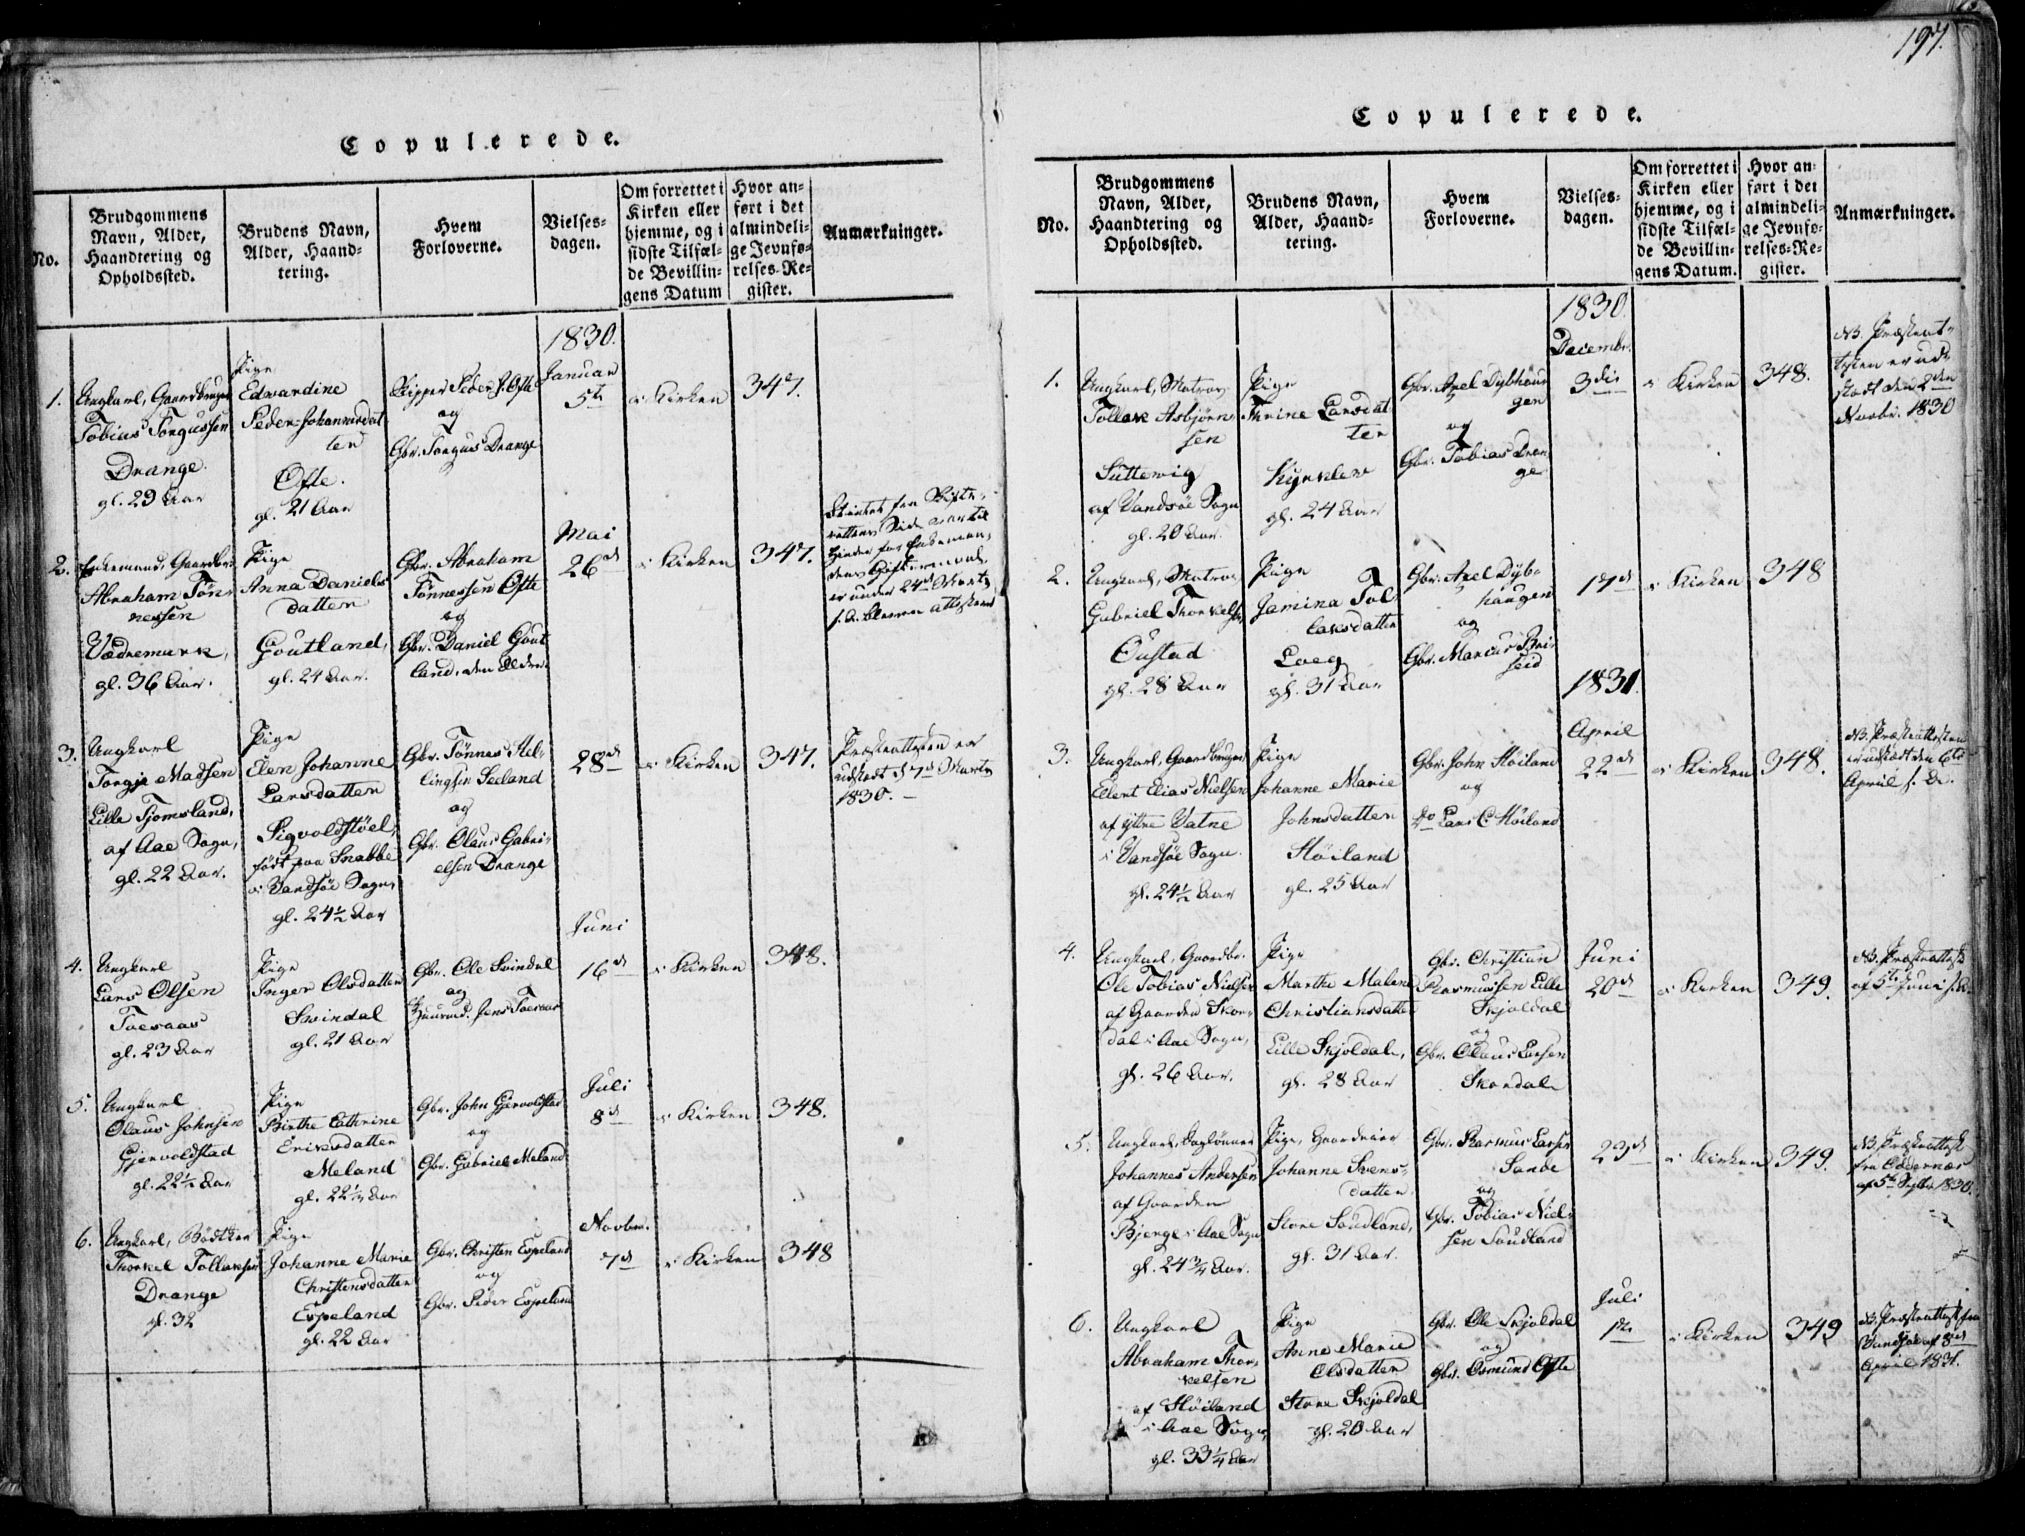 197.
Copulerede.
No.
Brudgommens
Navn, Alder,
Haandtering og
Opholdssted.
Brudens Navn,
Alder, Haand-
tering.
Hvem
Forloverne.
Vielses-
dagen.
Om forrettet i
Kirken eller
hjemme, og i
sidste Tilfæl-
de Bevillin-
gens Datum
Hvor an-
ført i det
almindeli-
ge Jevnfø-
relses-Re-
gister.
Anmærkninger.
1830.
1.
Ungkarl, Gaardbruger
Tobias Torgussen
Drange.
gl. 29 Aar
Pige
Edvardine
Peder-Johannesdat
ter
Ofte.
gl. 21 Aar
Skipper Peder J. Ofte
og
Gbr. Torgus Drange
Januar
5te
i Kirken
347.
2.
Enkemand, Gaardbr.
Abraham Tøn-
nessen
Vedremark,
gl. 36 Aar.
Pige
Anna Daniels
datter
Goutland,
gl. 24 Aar.
Gbr. Abraham
Tønnessen Ofte
og
Gbr. Daniel Gout
land, den Eldre.
Mai
26de
i Kirken
347.
er under 24de Marts
3.
Ungkarl
Torgje Madsen
Lille Tjomsland,
af Aae Sogn,
gl. 22 Aar.
Pige
Elen Johanne
Larsdatter
Sigvoldstøel,
født paa Snabbe
i Vandsøe Sogn,
gl. 24½ Aar
Gbr. Tønnes Hel-
lingsen Seeland
og
Gbr. Olaus Gabri-
elsen Drange
28de
i Kirken
347.
Præsteattesten er
udstedt d. 7de Marts
1830. –
4.
Ungkarl
Lars Olsen
Toesaas
gl. 23 Aar
Pige
Inger Olsdatter
Svindal
gl. 21 Aar
Gbr. Ole Svindal
og
Huusmd. Jens Toesaas
Juni
16de
i Kirken
348.
5.
Ungkarl
Olaus Johnsen
Gjervoldstad
gl. 22½ Aar
Pige
Birthe Cathrine
Ericsdatter
Meland
gl. 22½ Aar
Gbr. John Gjervoldstad
og
Gbr. Gabriel Meland
Juli
8de
i Kirken
348.
6.
Ungkarl, Bødtker
Thorkel Tollaksen
Drange
gl. 32
Pige
Johanne Marie
Christensdatter
Espeland
gl. 22 Aar
Gbr. Christen Espeland
og
Gbr. Peder Espeland
Novbr.
7de
i Kirken
348
Copulerede.
No.
Brudgommens
Navn, Alder,
Haandtering og
Opholdssted.
Brudens Navn,
Alder, Haand-
tering.
Hvem
Forloverne.
Vielses-
dagen.
Om forrettet i
Kirken eller
hjemme, og i
sidste Tilfæl-
de Bevillin-
gens Datum.
Hvor an-
ført i det
almindeli-
ge Jevnfø-
relses-Re-
gister.
Anmærkninger.
1830.
1.
Ungkarl, Matros
Tollak Asbjørn
sen
Suttevig
af Vandsøe Sogn
gl. 20 Aar.
Pige
Thrine Larsdat
ter
gl. 24 Aar
Gbr. Axel Dybhoun
gen
og
Gbr. Tobias Dran
ge
Decembr.
3die
i Kirken
348.
NB. Præsteat-
testen er ud-
stedt den 2den
Novbr. 1830
2.
Ungkarl, Matros
Gabriel Thorkels.
Oustad
gl. 28 Aar
Pige
Jamina Tol-
laksdatter
Loeg
gl. 31 Aar
Gbr. Axel Dyb-
haugen
og
Gbr. Marcus Bri-
seid
17de
i Kirken
348
1831.
3.
Ungkarl, Gaardbruger
Elert Elias Nielsen
af yttre Vatne
i Vandsøe Sogn.
gl. 24½ Aar
Pige
Johanne Marie
Johnsdatter
Høiland
gl. 25 Aar
Gbr. John Høiland
og
do Lars C. Høiland
April
22de
i Kirken
348.
NB. Præsteattesten
er udstedt den 6te
April s. A.
4.
Ungkarl, Gaardbr.
Ole Tobias Nielsen
af Gaarden Skor-
dal i Aae Sogn,
gl. 26 Aar.
Pige
Marthe Malene
Christiansdatter
Lille Skjoldal,
gl. 28 Aar
Gbr. Christian
Rasmussen Lille
Skjoldal
og
Gbr. Olaus Larsen
Skordal
Juni
20de
i Kirken
349.
NB. Præsteattest
af 5te Juni s. A.
5.
Ungkarl, Daglønner
Johannes Andersen
af Gaarden
Bjerge i Aae Sogn
gl. 24¾ Aar.
Pige, Gaardeier
Johanne Svens-
datter
Store Soudland,
gl. 31 Aar.
Gbr. Rasmus Larsen
Sande
og
Gbr. Tobias Niel-
sen Soudland
23de
i Kirken
349.
NB. Præsteattest
fra Oddernæs
af 5te Septbr. 1830.
6.
Ungkarl
Abraham Thor-
kelsen
af Høiland
i Aae Sogn,
gl. 33¼ Aar
Pige
Anne Marie
Olsdatter
Store Skjoldal
gl. 20 Aar
Gbr. Ole Skjoldal
og
Gbr. Osmund Ofte
Juli
1ste
i Kirken
349
NB. Præsteattest fra
Vandsøe af 8de
April 1831.